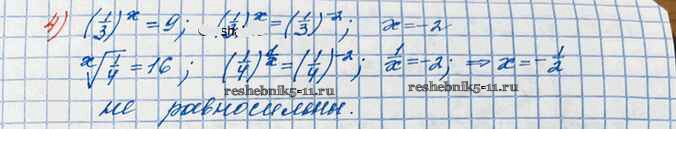 4) (1/3)^x = 9; (1/3)^x = (1/3)^-2; x = -2
x√(1/4) = 16; (1/4)^(1/x) = (1/4)^-2; 1/x = -2; ⇒ x = -1/2
reshebnik5-11.ru reshebnik5-11.ru
не равносильны.